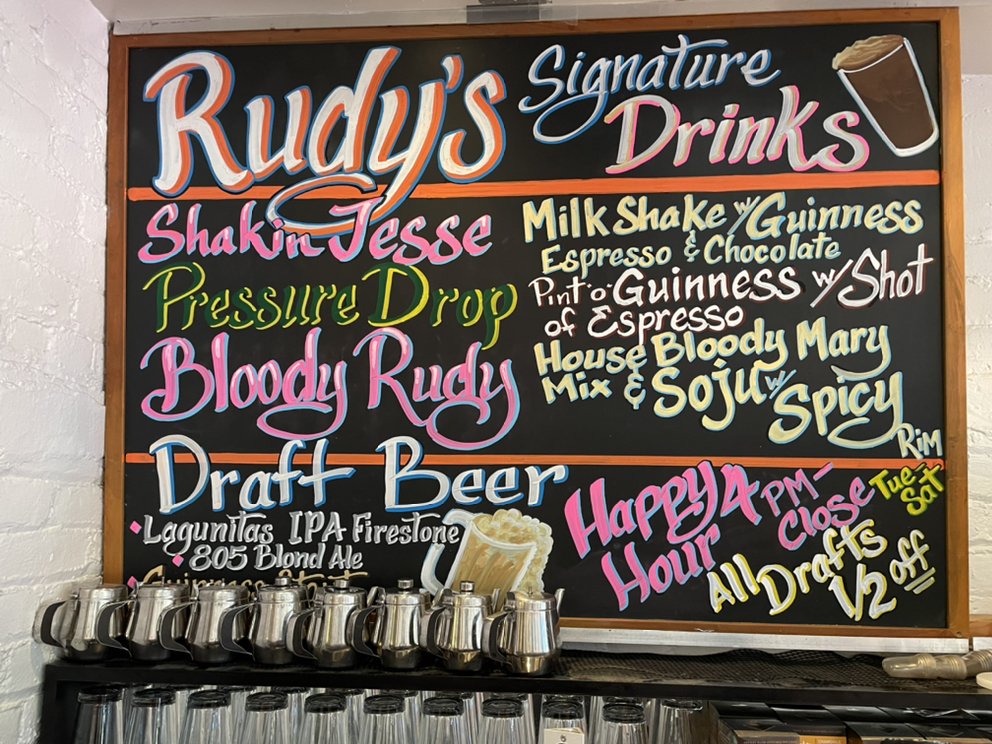 Rudy's
Signature
Drinks
Shakin Jesse
Milk Shake w/ Guinness
Espresso & Chocolate
Pressure Drop
Pint 'o' Guinness w/ Shot
of Espresso
Bloody Rudy
House Bloody Mary
Mix & Soju w/ Spicy
Rim
Draft Beer
Lagunitas IPA Firestone
805 Blond Ale
Guinness Stout
Happy
Hour
4 PM-
Close
Tue-
Sat
All Drafts
1/2 off